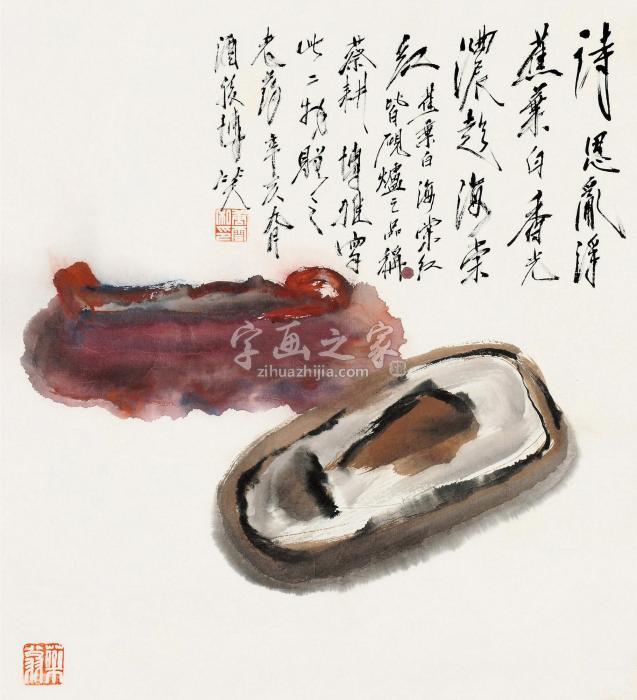 詩思亂浮
蕉葉白香光
濃趁海棠
紅 蕉葉白海棠紅
皆硯爐之品稱
蔡耕博雅
此二物贈之
老葯辛亥
酒後博笑
字画之家
zihuazhijia.com
藥翁